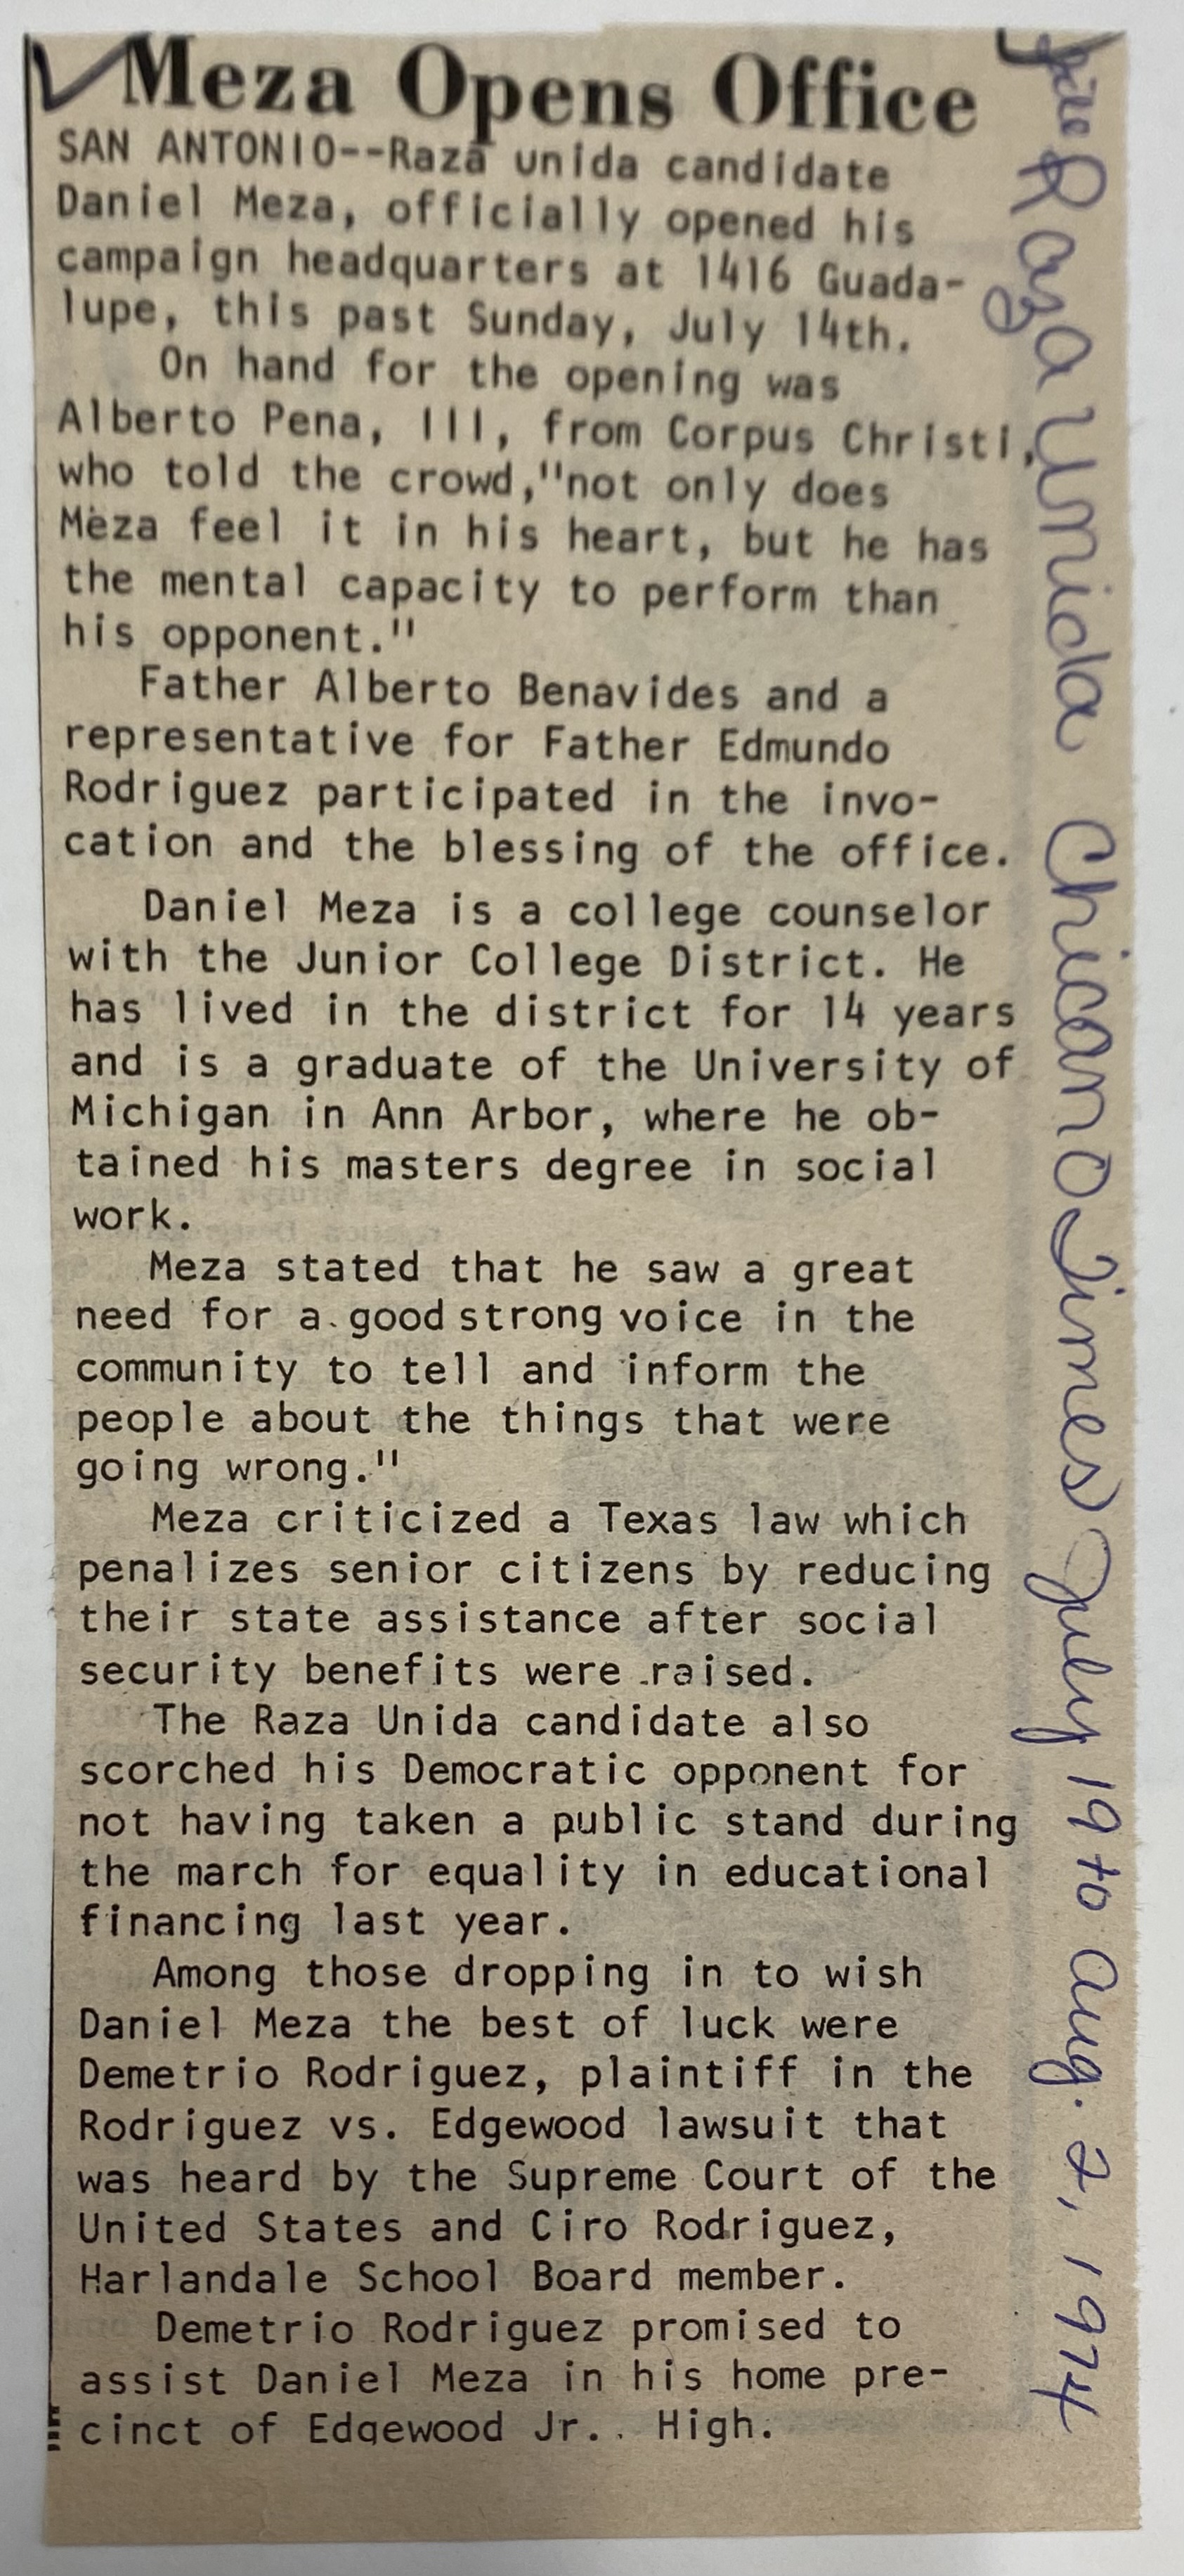 Meza Opens Office
SAN ANTONIO--Raza unida candidate
Daniel Meza, officially opened his
campaign headquarters at 1416 Guada-
lupe, this past Sunday, July 14th.
On hand for the opening was
Alberto Pena, III, from Corpus Christi,
who told the crowd,"not only does
Meza feel it in his heart, but he has
the mental capacity to perform than
his opponent."
Father Alberto Benavides and a
representative for Father Edmundo
Rodriguez participated in the invo-
cation and the blessing of the office.
Daniel Meza is a college counselor
with the Junior College District. He
has lived in the district for 14 years
and is a graduate of the University of
Michigan in Ann Arbor, where he ob-
tained his masters degree in social
work.
Meza stated that he saw a great
need for a good strong voice in the
community to tell and inform the
people about the things that were
going wrong."
Meza criticized a Texas law which
penalizes senior citizens by reducing
their state assistance after social
security benefits were raised.
The Raza Unida candidate also
scorched his Democratic opponent for
not having taken a public stand during
the march for equality in educational
financing last year.
Among those dropping in to wish
Daniel Meza the best of luck were
Demetrio Rodriguez, plaintiff in the
Rodriguez vs. Edgewood lawsuit that
was heard by the Supreme Court of the
United States and Ciro Rodriguez,
Harlandale School Board member.
Demetrio Rodriguez promised to
assist Daniel Meza in his home pre-
cinct of Edgewood Jr.. High.
Raza Unida Chicano Times July 19 to Aug. 2, 1974